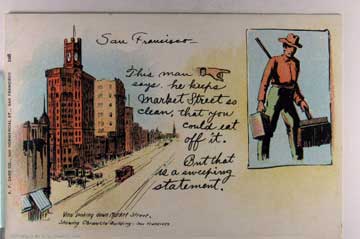 San Francisco—
This man
says he keeps
Market Street so
clean, that you
could eat
off it.
But that
is a sweeping
statement.
View looking down Market Street,
Showing Chronicle Building - San Francisco